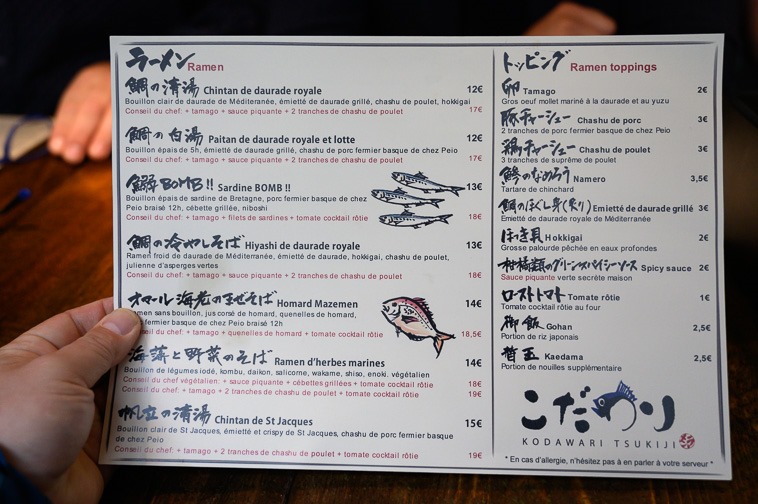 ラーメン Ramen
鯛の清湯 Chintan de daurade royale 12€
Bouillon clair de daurade de Méditeranée, émietté de daurade grillé, chashu de poulet, hokkigai
Conseil du chef: + tamago + sauce piquante + 2 tranches de chashu de poulet 17€
鯛の白湯 Paitan de daurade royale et lotte 12€
Bouillon épais de 5h, émietté de daurade grillé, chashu de porc fermier basque de chez Peio
Conseil du chef: + tamago + sauce piquante + 2 tranches de chashu de poulet 17€
鰯BOMB!! Sardine BOMB !! 13€
Bouillon épais de sardine de Bretagne, porc fermier basque de chez
Peio braisé 12h, cébette grillée, niboshi
Conseil du chef: + tamago + filets de sardines + tomate cocktail rôtie 18€
鯛の冷やしそば Hiyashi de daurade royale 13€
Ramen froid de daurade de Méditerranée, émietté de daurade, hokkigai, chashu de poulet,
julienne d'asperges vertes
Conseil du chef: + tamago + sauce piquante + 2 tranches de chashu de poulet 18€
オマール海老のまぜそば Homard Mazemen 14€
Ramen sans bouillon, jus corsé de homard, quenelles de homard,
fermier basque de chez Peio braisé 12h
Conseil du chef: + tamago + quenelles de homard + tomate cocktail rôtie 18,5€
海藻と野菜のそば Ramen d'herbes marines 14€
Bouillon de légumes iodé, kombu, daikon, salicorne, wakame, shiso, enoki, végétalien
Conseil du chef végétalien: + sauce piquante + cébettes grillées + tomate cocktail rôtie 18€
Conseil du chef: + tamago + 2 tranches de chashu de poulet + tomate cocktail rôtie 19€
帆立の清湯 Chintan de St Jacques 15€
Bouillon clair de St Jacques, émietté et crispy de St Jacques, chashu de porc fermier basque
de chez Peio
Conseil du chef: + tamago + 2 tranches de chashu de poulet + tomate cocktail rôtie 19€
トッピング Ramen toppings
卵 Tamago 2€
Gros oeuf mollet mariné à la daurade et au yuzu
豚チャーシュー Chashu de porc 3€
2 tranches de porc fermier basque de chez Peio
鶏チャーシュー Chashu de poulet 3€
3 tranches de suprême de poulet
鯵のなめろう Namero 3,5€
Tartare de chinchard
鯛のほぐし身(炙り) Emietté de daurade grillé 3€
Emietté de daurade royale de Méditerranée
ほっき貝 Hokkigai 2€
Grosse palourde pêchée en eaux profondes
柑橘類のグリーンスパイシーソース Spicy sauce 2€
Sauce piquante verte secrète maison
ローストトマト Tomate rôtie 1€
Tomate cocktail rôtie au four
御飯 Gohan 2,5€
Portion de riz japonais
替玉 Kaedama 2,5€
Portion de nouilles supplémentaire
こだわり
KODAWARI TSUKIJI
* En cas d'allergie, n'hésitez pas à en parler à votre serveur *